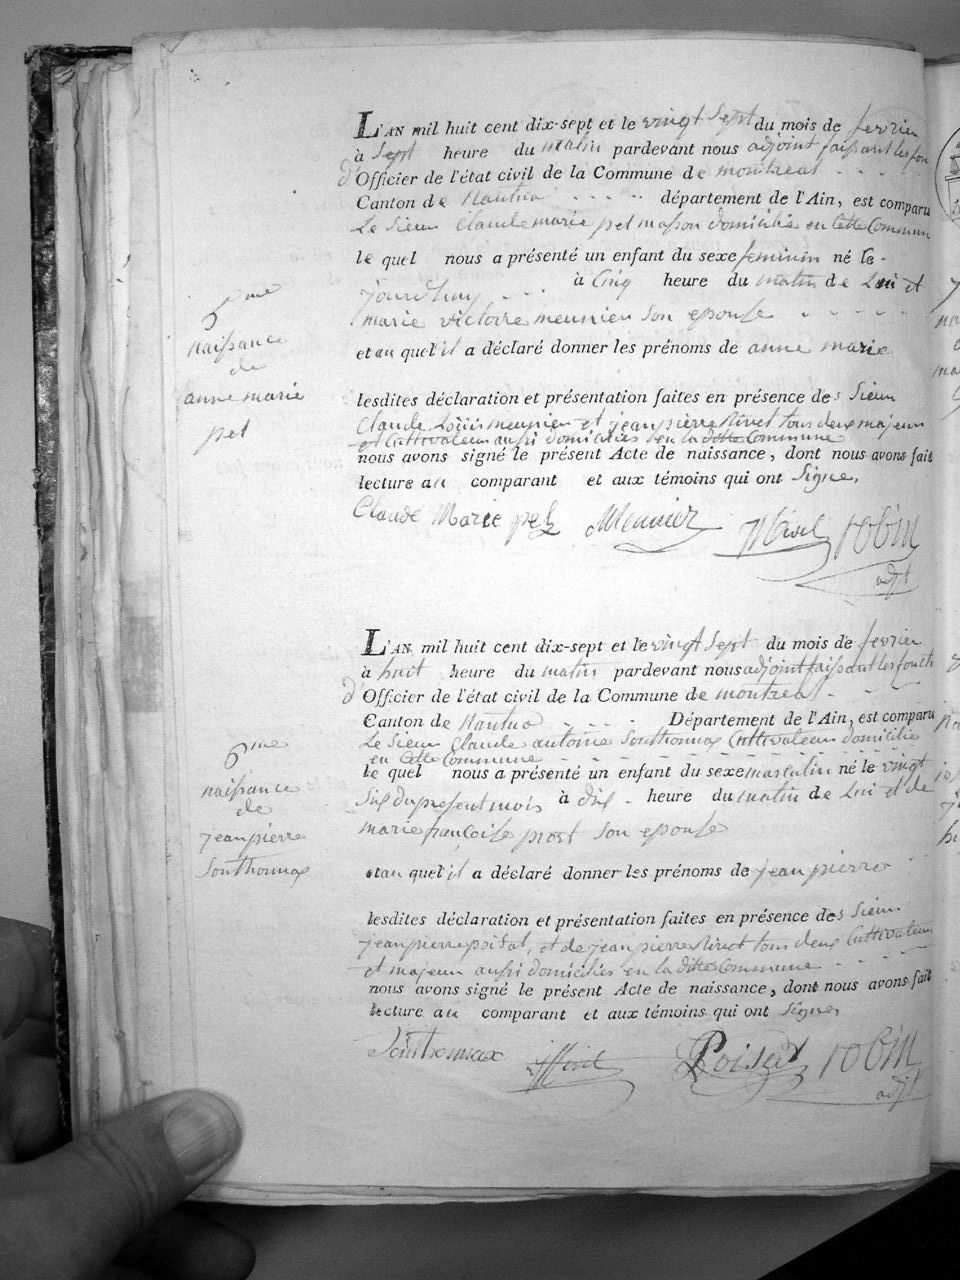 L'AN mil huit cent dix-sept et le vingt Sept du mois de fevrier
à Sept heure du matin pardevant nous adjoint faisant les fon
d'Officier de l'état civil de la Commune de montreal
Canton de Nantua département de l'Ain, est comparu
Le Sieur Claude marie pet masson domicilié en Cette Commun
le quel nous a présenté un enfant du sexe feminin né le
jourdhuy à Cinq heure du matin de Lui et
marie victoire meunier son epouse
et au quel il a déclaré donner les prénoms de anne marie
6me
naissance
de
anne marie
pet
lesdites déclaration et présentation faites en présence des Sieur
Claude Louis meunier et jean pierre tous deux majeur
et Cultivateur aussi domiciliés en la ditte Commune
nous avons signé le présent Acte de naissance, dont nous avons fait
lecture au comparant et aux témoins qui ont Signe,
Claude Marie pet Meunier robin
adjt
L'AN mil huit cent dix-sept et le vingt Sept du mois de fevrier
à huit heure du matin pardevant nous adjoint faisant les foncti
d'Officier de l'état civil de la Commune de montreal
Canton de Nantua Département de l'Ain, est comparu
Le Sieur Claude antoine Southonnax Cultivateur domicilié
en Cette Commune
le quel nous a présenté un enfant du sexe masculin né le vingt
Six du present mois à dix heure du matin de Lui et de
marie françoise prost son epouse
et au quel il a déclaré donner les prénoms de jean pierre
6me
naissance
de
jean pierre
Southonnax
lesdites déclaration et présentation faites en présence des Sieur
jean pierre poisat, et de jean pierre tous deux Cultivateur
et majeur aussi domiciliés en la ditte Commune
nous avons signé le présent Acte de naissance, dont nous avons fait
lecture au comparant et aux témoins qui ont Signe,
Southonnax Poisat robin
adjt